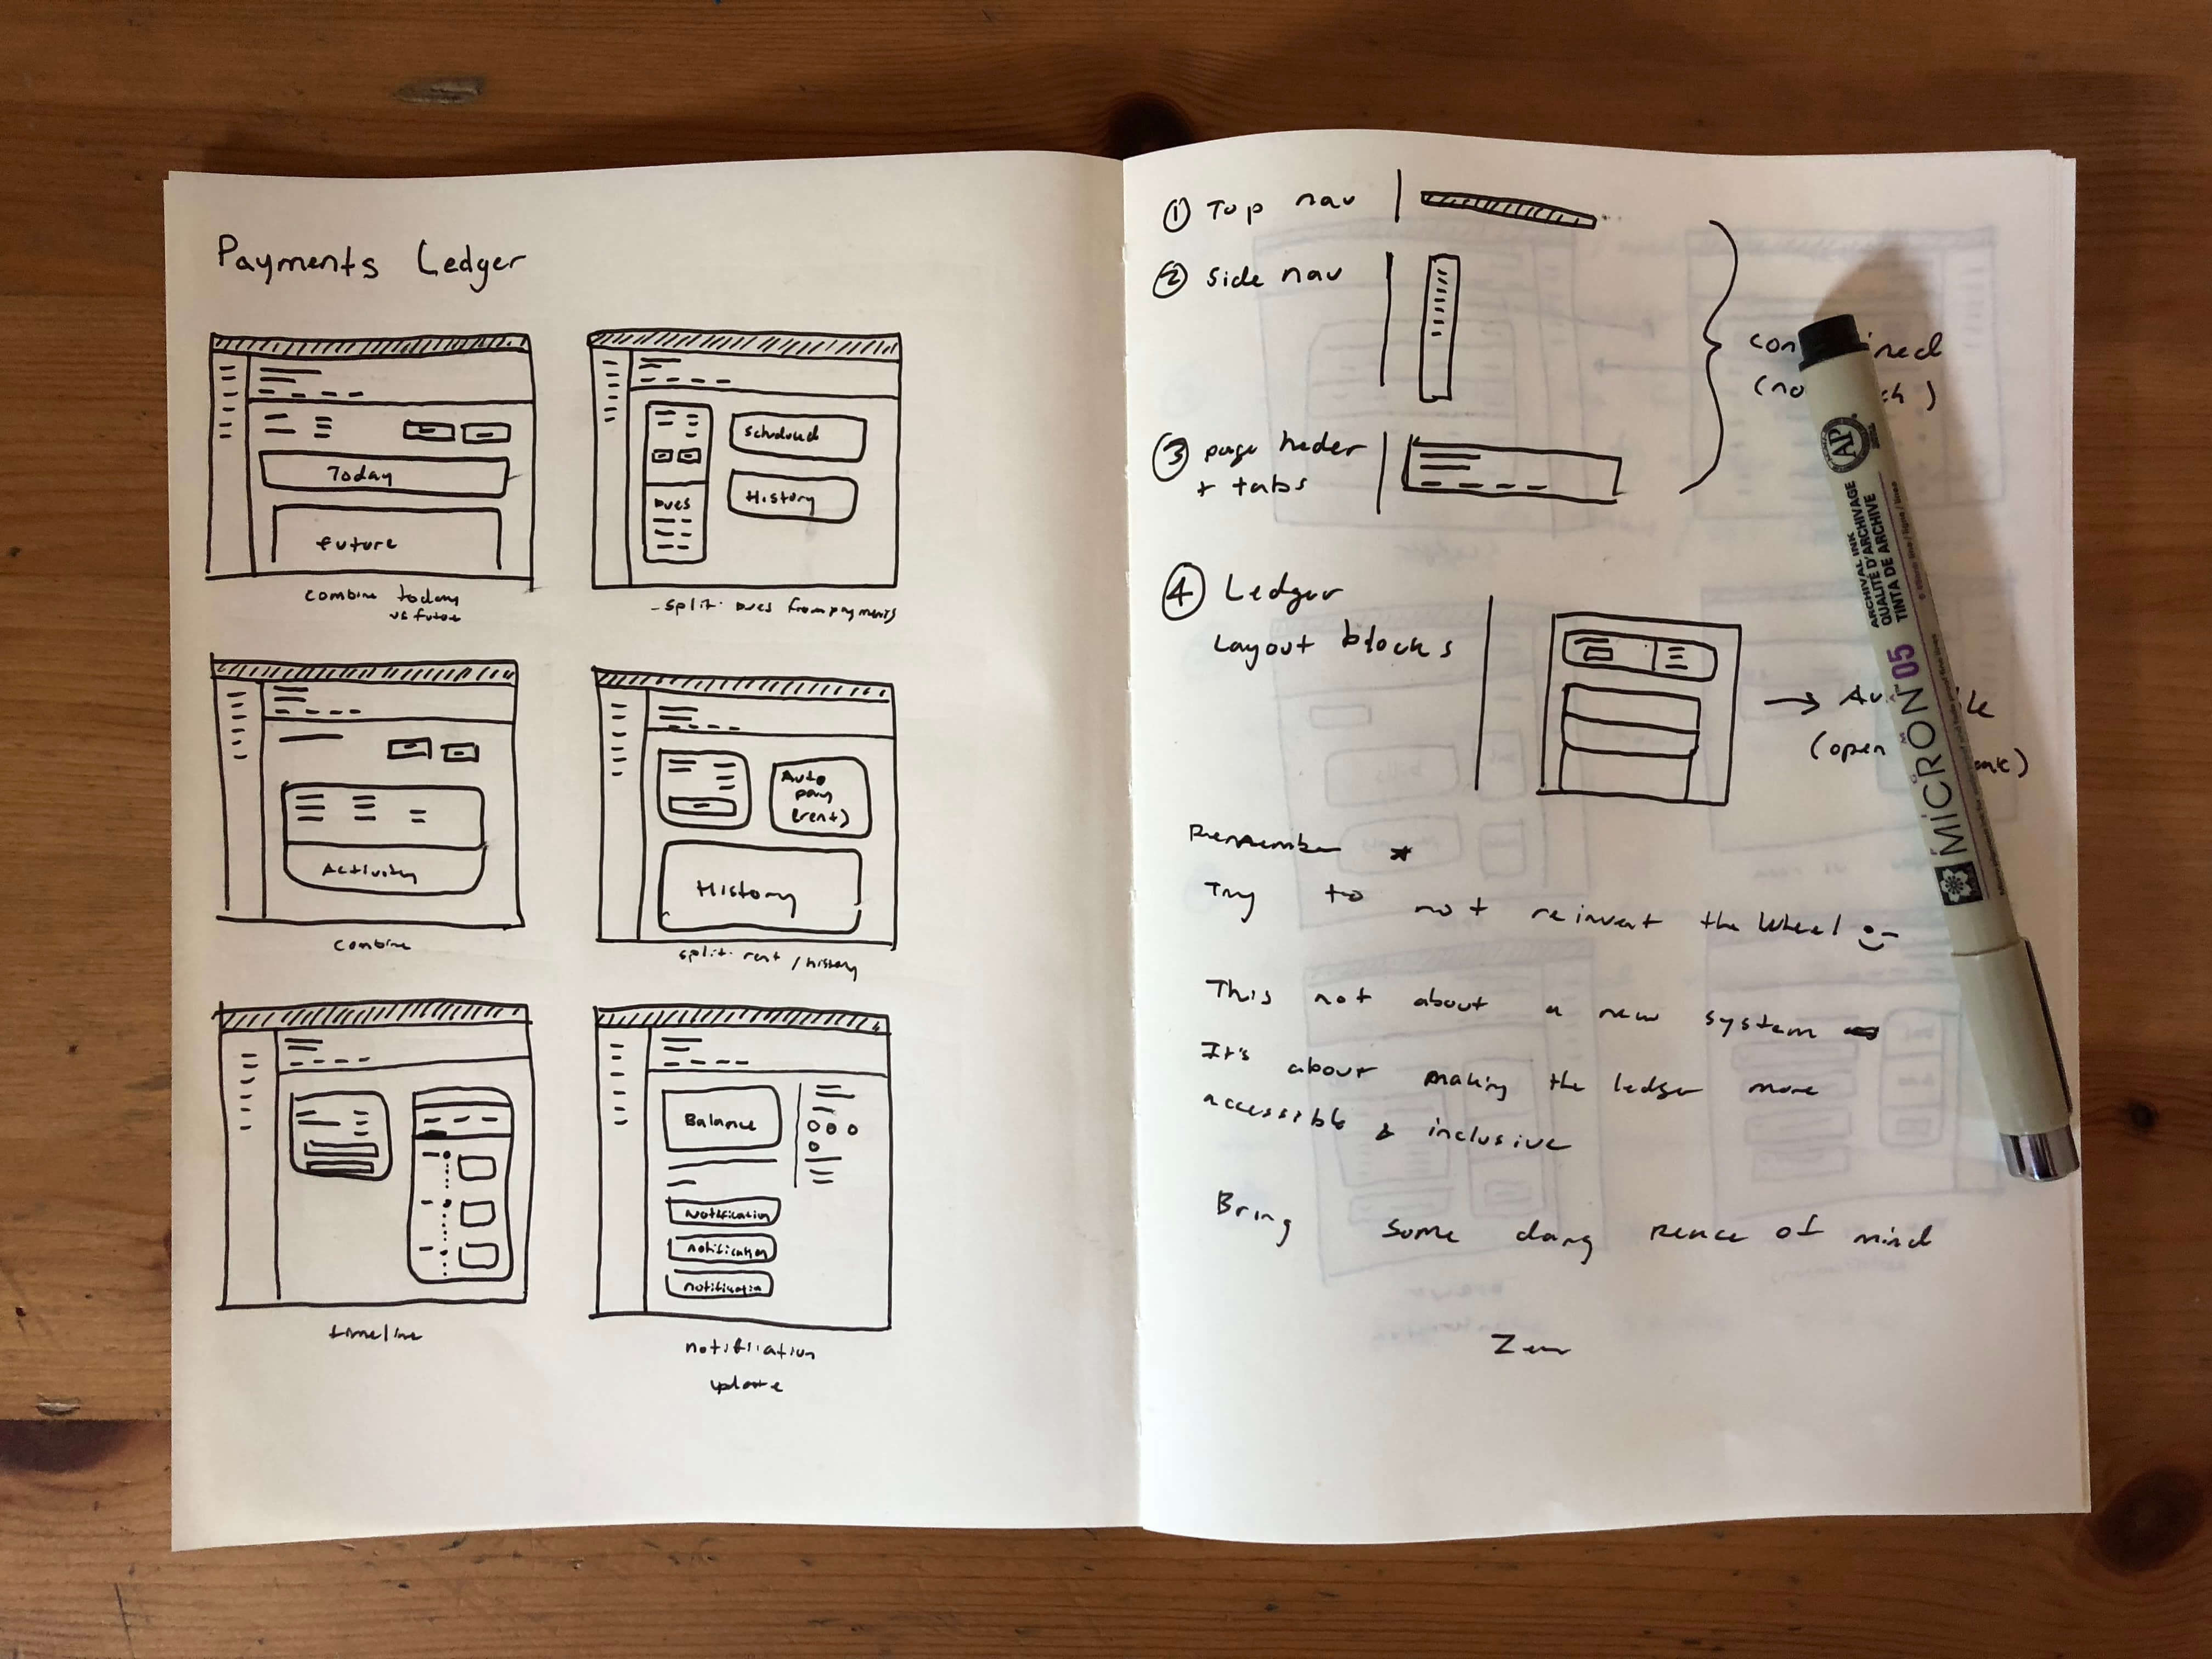 Payments Ledger
Today
future
combine today
vs future
Scheduled
History
Dues
- split: Dues from payments
Activity
combine
Auto
pay
(rent)
History
split: rent / history
timeline
Balance
Notification
notification
notification
notification
update
① Top nav
② Side nav
③ page heder
+ tabs
(no
④ Ledger
Layout blocks
(open
Remember
Try to not reinvent the Wheel
This not about a new system
It's about making the ledger more
accessible & inclusive
Bring some dang peace of mind
Zen
AP
ARCHIVAL INK
QUALITÉ D'ARCHIVAGE
QUALITÄT DE ARCHIVE
TINTA DE ARCHIVE
MICRON 05